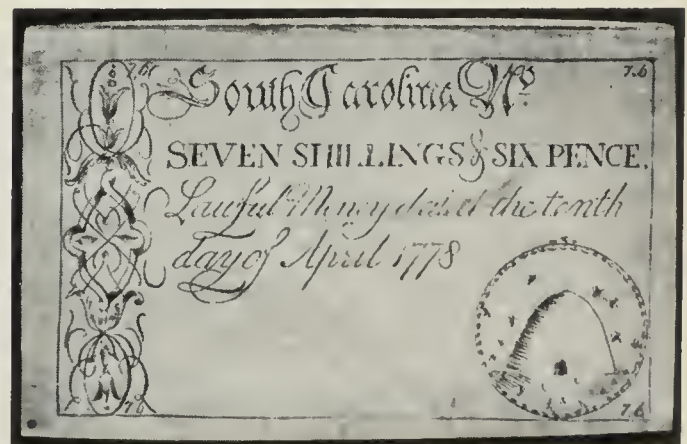 7.6
7.6
South Carolina No.
SEVEN SHILLINGS & SIX PENCE.
Lawful Money dated the tenth
day of April 1778
7.6
7.6